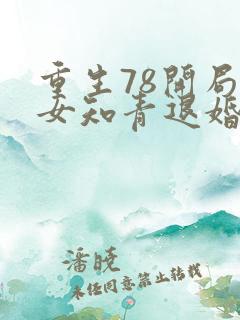 重生78开局
女知青退婚
潘晓
未经同意禁止转载